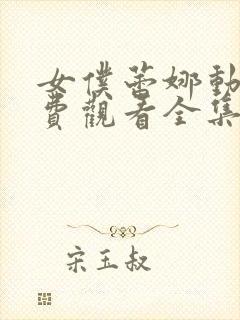 女僕蕾娜動
費觀看全集
宋玉叔